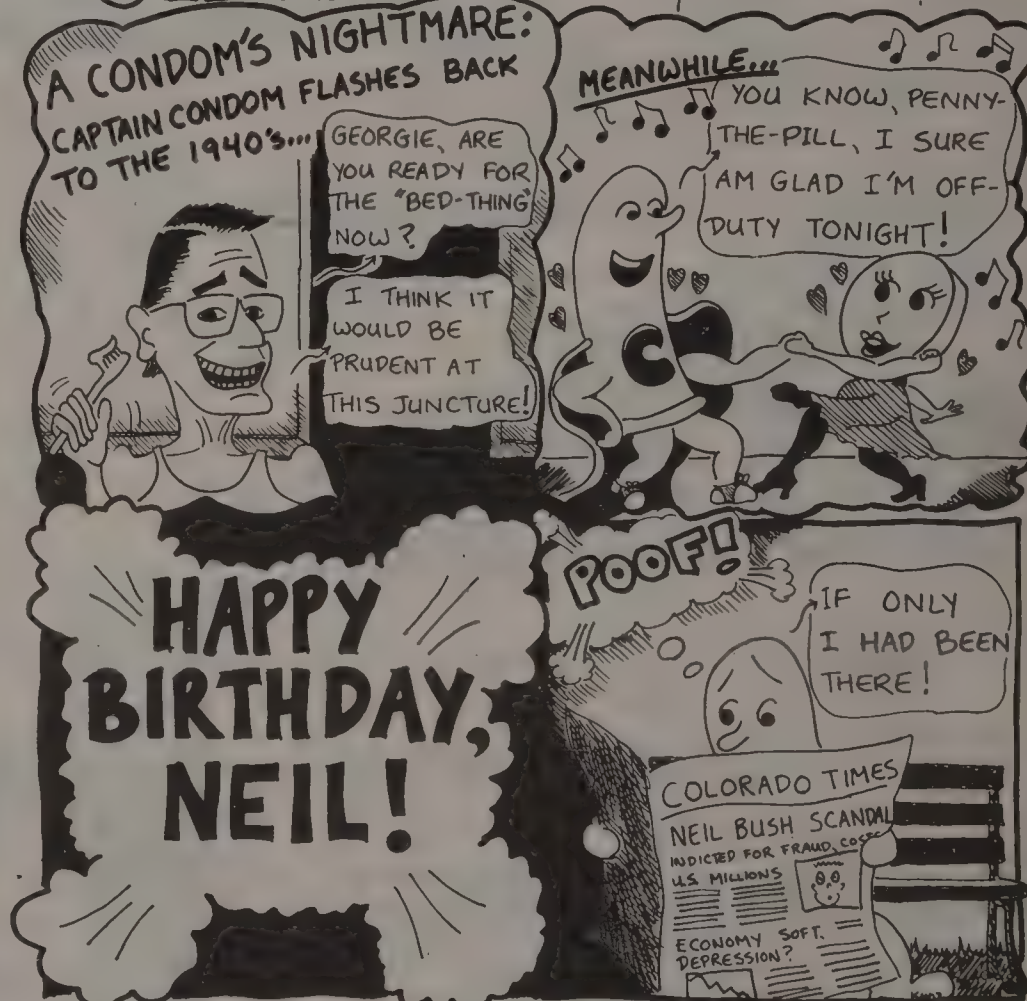 A CONDOM'S NIGHTMARE:
CAPTAIN CONDOM FLASHES BACK
TO THE 1940's...
GEORGIE, ARE
YOU READY FOR
THE "BED-THING"
NOW?
I THINK IT
WOULD BE
PRUDENT AT
THIS JUNCTURE!
MEANWHILE...
YOU KNOW, PENNY-
THE-PILL, I SURE
AM GLAD I'M OFF-
DUTY TONIGHT!
C
HAPPY
BIRTHDAY,
NEIL!
POOF!
IF ONLY
I HAD BEEN
THERE!
COLORADO TIMES
NEIL BUSH SCANDAL
INDICTED FOR FRAUD, COSTS
U.S. MILLIONS
ECONOMY SOFT.
DEPRESSION?